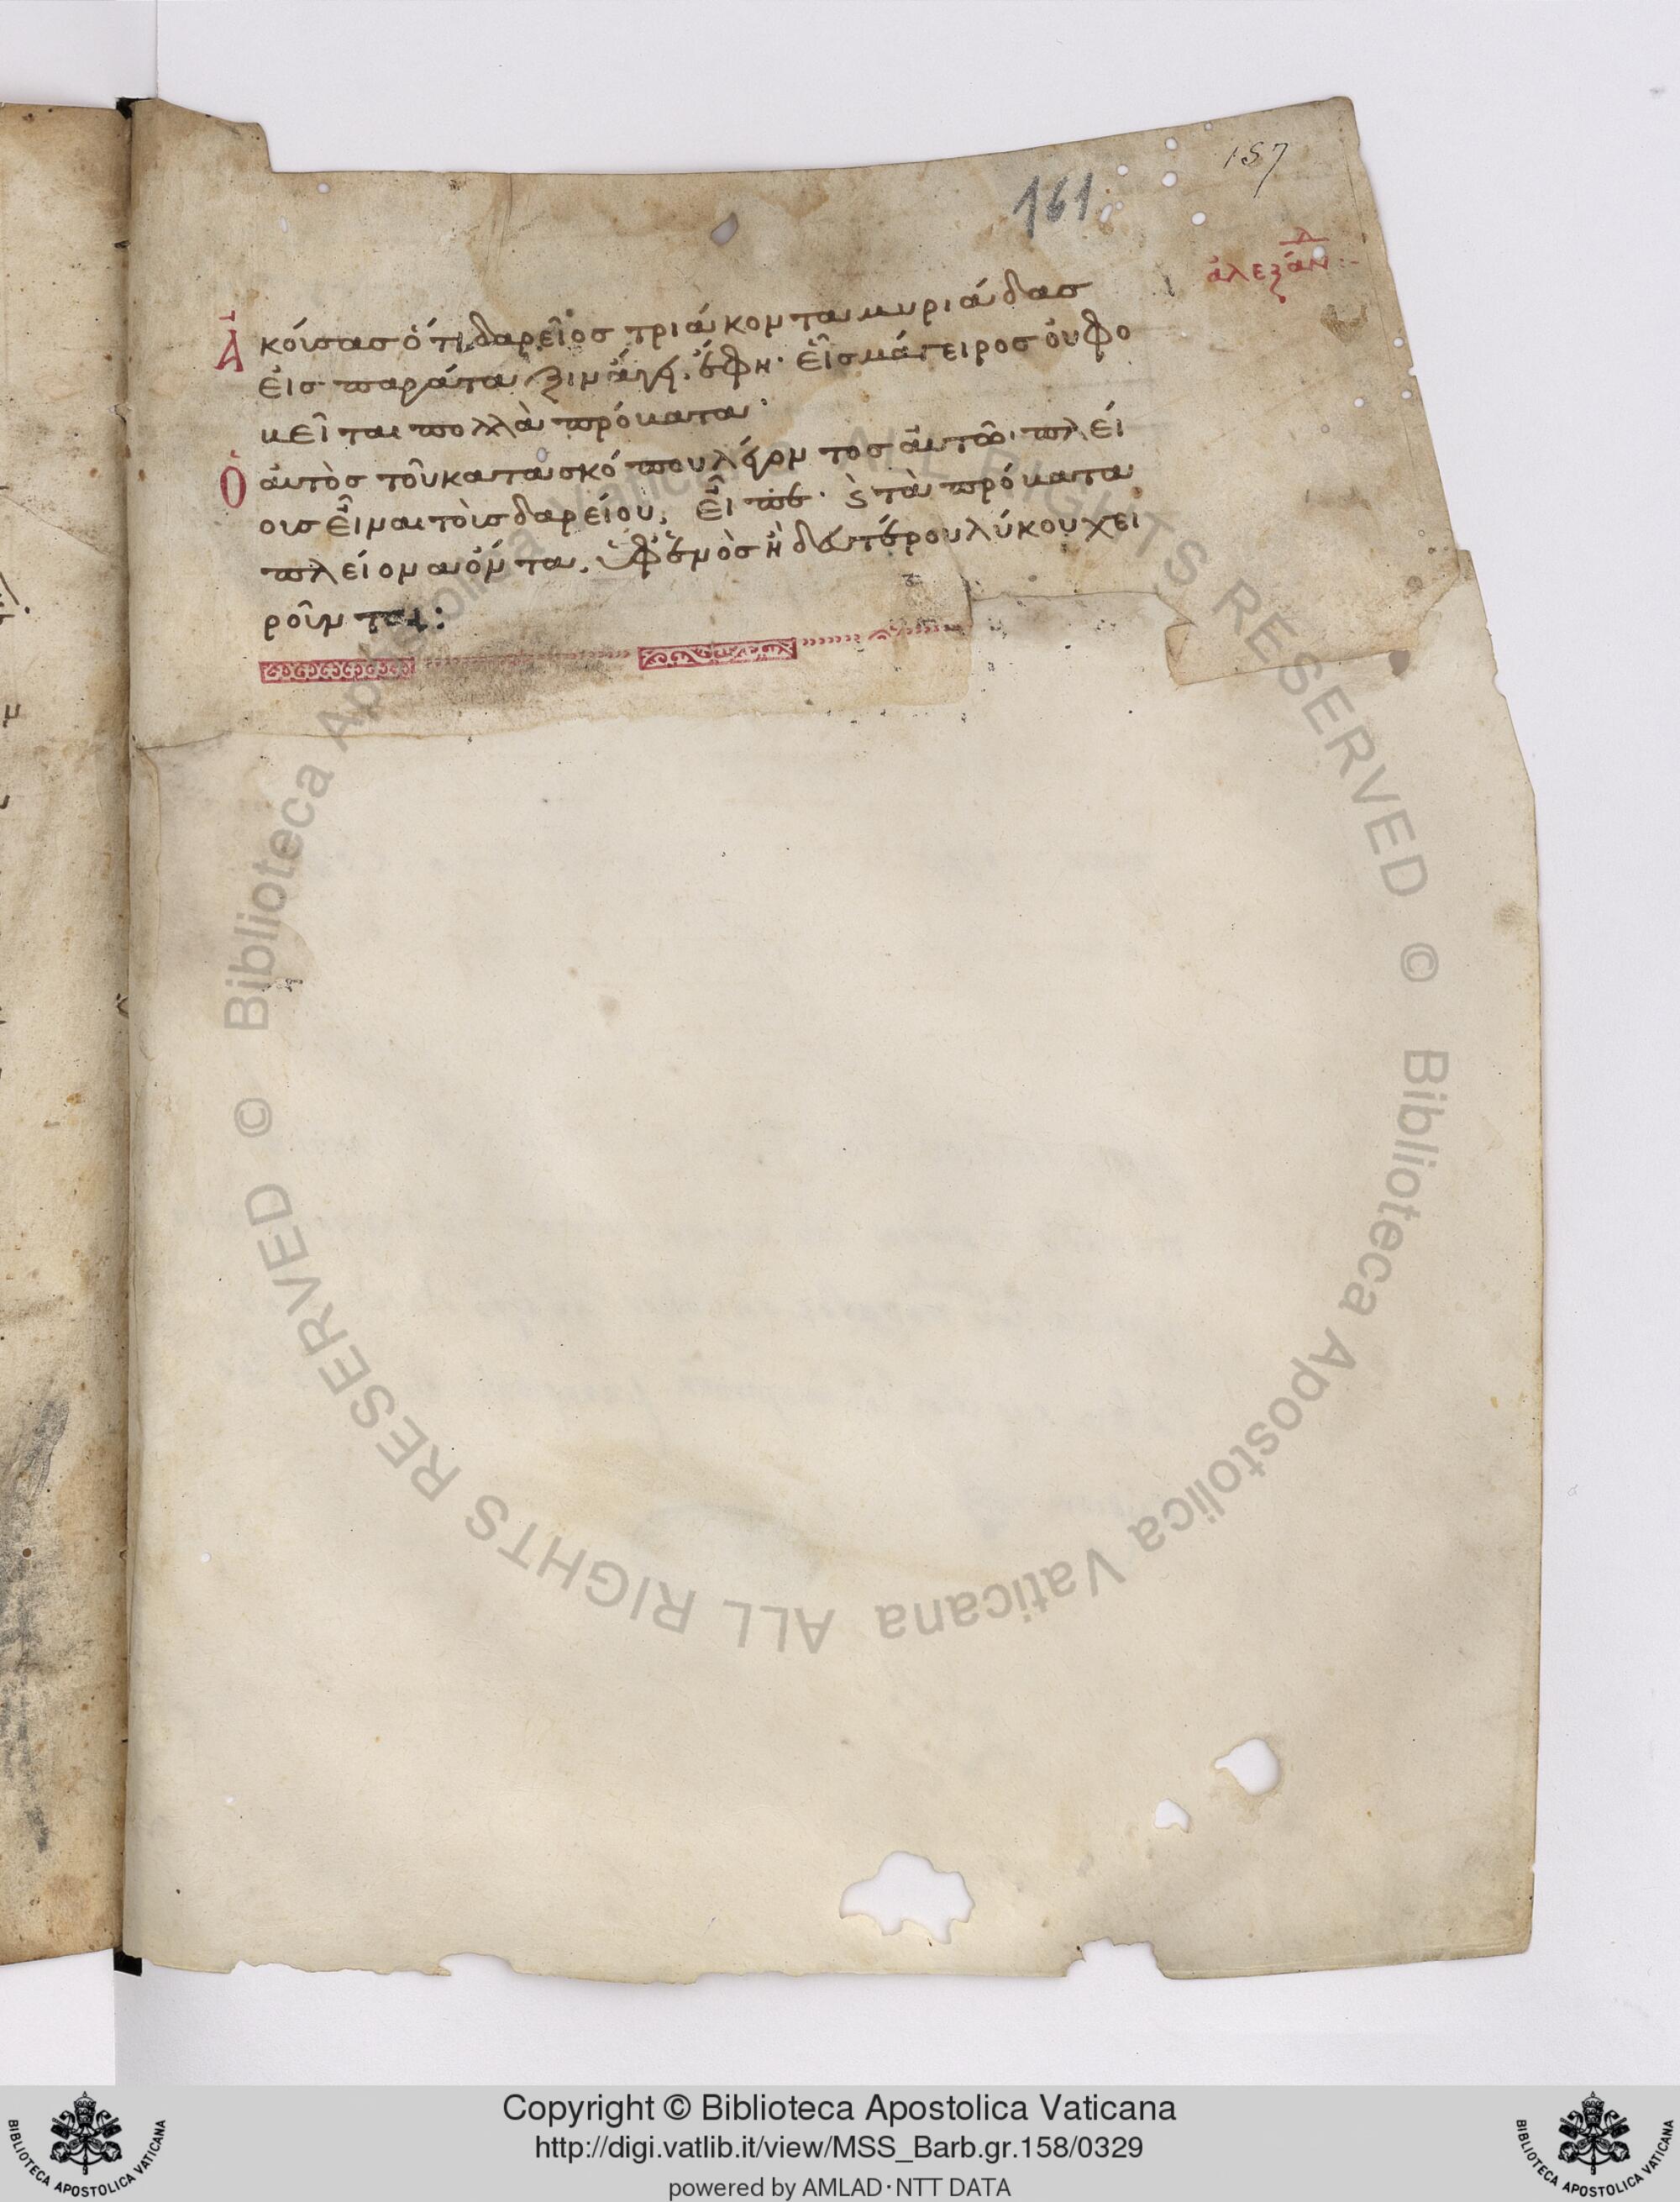 157
161
ἀλεξάν
Ἀκούσας ὅτι δαρεῖος τριάκοντα μυριάδας
εἰς παράταξιν ἄγει. ἔφη· εἷς μάγειρος οὐ φο
βεῖται πολλὰ πρόβατα·
Ὁ αὐτὸς τοῦ κατασκόπου λέγοντος αὐτῶ· πλεί
ους εἶναι τοὺς δαρείου. εἶπε· καὶ τὰ πρόβατα
πλείονα ὄντα. ὑφ' ἑνὸς ἢ δευτέρου λύκου χει
ροῦνται:
Copyright © Biblioteca Apostolica Vaticana
http://digi.vatlib.it/view/MSS_Barb.gr.158/0329
powered by AMLAD·NTT DATA
© Biblioteca Apostolica Vaticana ALL RIGHTS RESERVED
© Biblioteca Apostolica Vaticana ALL RIGHTS RESERVED
BIBLIOTECA APOSTOLICA VATICANA
BIBLIOTECA APOSTOLICA VATICANA